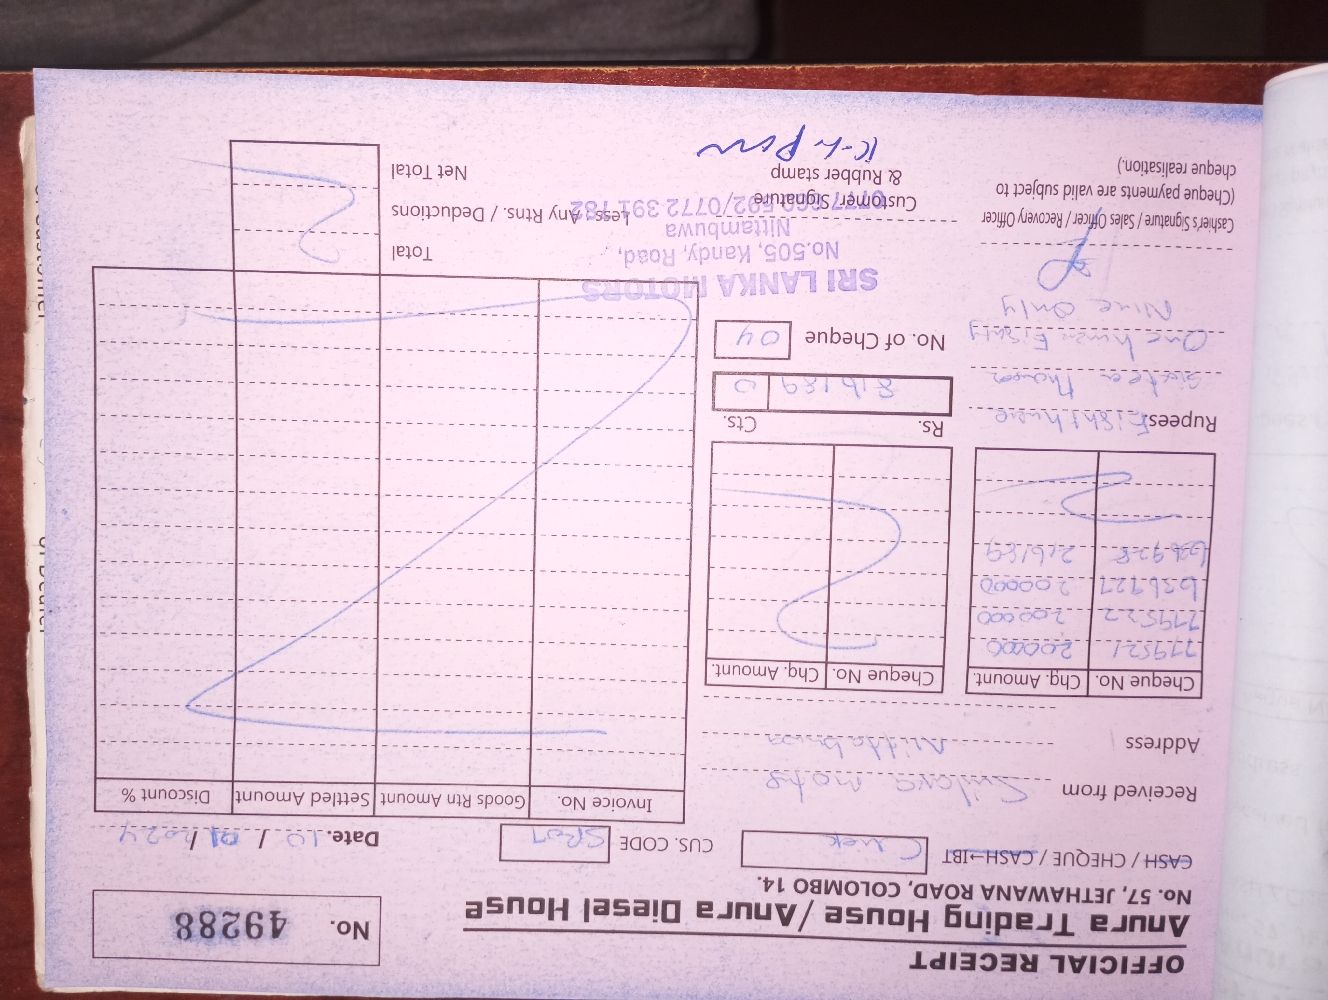 OFFICIAL RECEIPT
Anura Trading House / Anura Diesel House
No. 57, JETHAWANA ROAD, COLOMBO 14.
No. 49288
CASH / CHEQUE / CASH-IBT
CUS. CODE SR07
Date. 10 / 01 / 2024
Received from
Address Nittabuwa
Cheque No. Chq. Amount.
779521 200000
779522 200000
636927 200000
636928 216189
Cheque No. Chq. Amount.
Invoice No. Goods Rtn Amount Settled Amount Discount %
Rupees
One hun Eighty
Nine Only
Rs. Cts.
816189 0
No. of Cheque 04
SRI LANKA MOTORS
No.505, Kandy, Road,
Nittambuwa
0772 391 782
Cashier's Signature / Sales Officer / Recovery Officer
(Cheque payments are valid subject to
cheque realisation.)
Customer Signature
& Rubber stamp
Total
Less . Any Rtns. / Deductions
Net Total